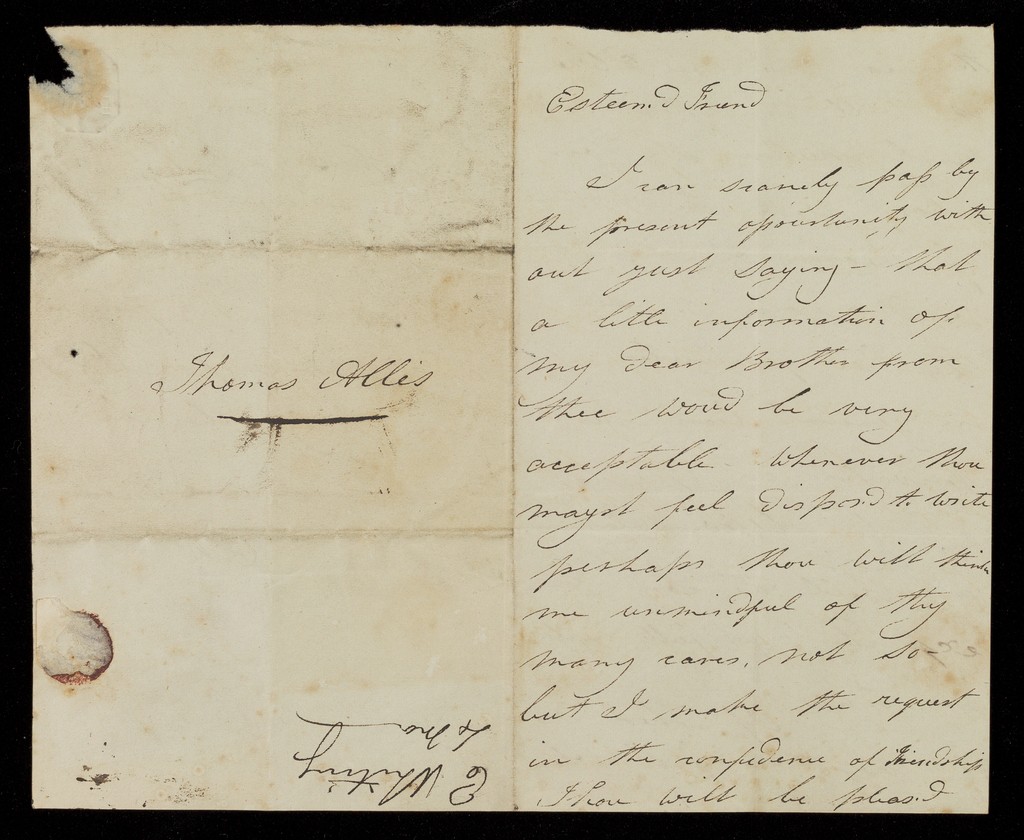 Thomas Allis
E Whiting
Esteem'd Friend
I can scarcely pass by
the present opportunity with
out just saying - that
a little information of
my dear Brother from
thee woud be very
acceptable whenever thou
mayst feel dispos'd to write
perhaps thou will think
me unmindful of thy
many cares, not so -
but I make the request
in the confidence of Friendship
Thou will be pleas'd